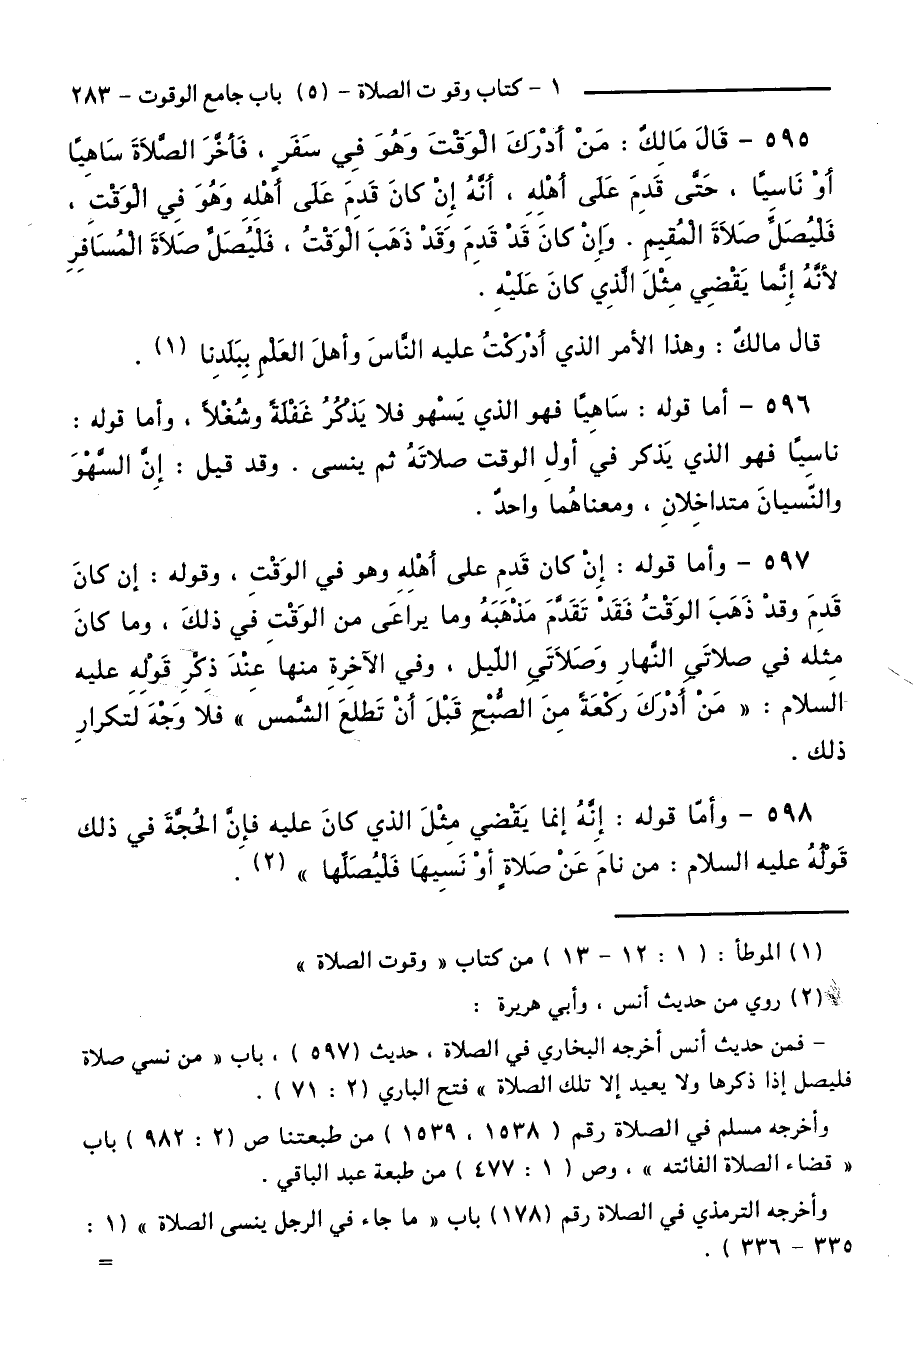 ١ – كتاب وقو ت الصلاة – (٥) باب جامع الوقوت – ٢٨٣
٥٩٥ – قَالَ مَالِكٌ : مَنْ أَدْرَكَ الْوَقْتَ وَهُوَ فِي سَفَرٍ ، فَأَخَّرَ الصَّلاَةَ سَاهِيًا
أَوْ نَاسِيًا ، حَتَّى قَدِمَ عَلَى أَهْلِهِ ، أَنَّهُ إِنْ كَانَ قَدِمَ عَلَى أَهْلِهِ وَهُوَ فِي الْوَقْتِ ،
فَلْيُصَلِّ صَلاَةَ الْمُقِيمِ . وَإِنْ كَانَ قَدْ قَدِمَ وَقَدْ ذَهَبَ الْوَقْتُ ، فَلْيُصَلِّ صَلاَةَ الْمُسَافِرِ
لأَنَّهُ إِنَّما يَقْضِي مِثْلَ الَّذِي كانَ عَلَيْهِ .
قال مالكٌ : وهذا الأمر الذي أدْرَكْتُ عليه النَّاسَ وأهلَ العَلْمِ بِبَلَدِنا (١) .
٥٩٦ – أما قوله : سَاهِيًا فهو الذي يَسْهو فلا يَذْكُرُ غَفْلَةً وشُغْلاً ، وأما قوله :
ناسِيًا فهو الذي يَذكر في أولِ الوقت صلاتَهُ ثم ينسى . وقد قيل : إنَّ السَّهْوَ
والنِّسيانَ متداخِلانِ ، ومعناهُما واحدٌ .
٥٩٧ – وأما قوله : إنْ كان قَدِمَ على أهْلِهِ وهو في الوَقْتِ ، وقوله : إن كانَ
قَدِمَ وقدْ ذَهَبَ الوَقْتُ فَقَدْ تَقَدَّمَ مَذْهَبَهُ وما يراعَى من الوَقْتِ في ذلكَ ، وما كانَ
مثله في صلاتَيِ النَّهارِ وَصَلاَتَيِ اللَّيل ، وفي الآخرةِ منها عِنْدَ ذِكْرِ قَوْلِهِ عليه
السلام : « مَنْ أَدْرَكَ رَكْعَةً مِنَ الصُّبْحِ قَبْلَ أنْ تَطلعَ الشَّمس » فلا وَجْهَ لتكرارِ
ذلك .
٥٩٨ – وأمّا قوله : إنَّهُ إنما يَقْضي مِثْلَ الذي كانَ عليه فإنَّ الحُجَّةَ في ذلك
قَوْلُهُ عليه السلام : من نامَ عَنْ صَلاةٍ أوْ نَسِيهَا فَلْيُصَلِّها » (٢) .
(١) الموطأ : ( ١ : ١٢ – ١٣ ) من كتاب « وقوت الصلاة »
(٢) روي من حديث أنس ، وأبي هريرة :
– فمن حديث أنس أخرجه البخاري في الصلاة ، حديث (٥٩٧ ) ، باب « من نسي صلاة
فليصل إذا ذكرها ولا يعيد إلا تلك الصلاة » فتح الباري (٢ : ٧١ ) .
وأخرجه مسلم في الصلاة رقم ( ١٥٣٨ ، ١٥٣٩ ) من طبعتنا ص (٢ : ٩٨٢ ) باب
« قضاء الصلاة الفائته » ، وص ( ١ : ٤٧٧ ) من طبعة عبد الباقي .
وأخرجه الترمذي في الصلاة رقم (١٧٨) باب « ما جاء في الرجل ينسى الصلاة » (١ :
٣٣٥ – ٣٣٦ ) .
=